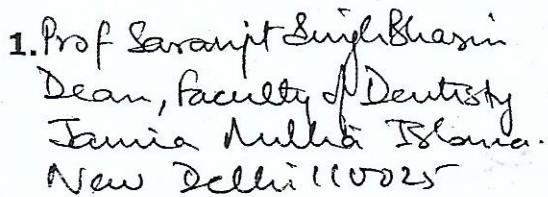 1. Prof Saranjit Singh Bhasin
Dean, Faculty of Dentistry
Jamia Millia Islamia.
New Delhi 110025